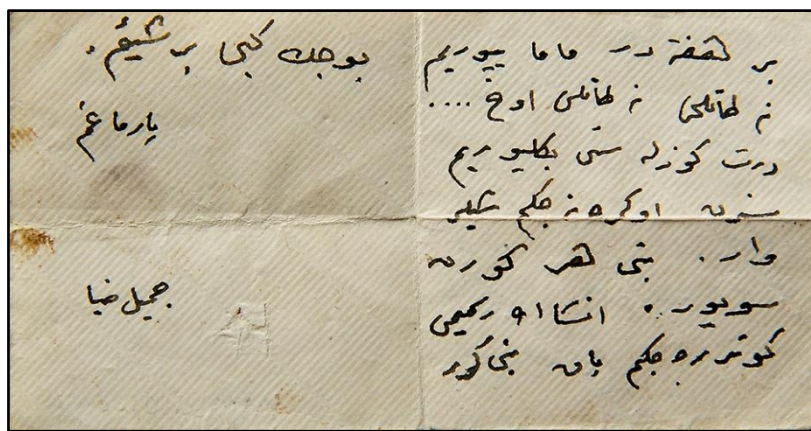 بر هفته در ماما ییوریم
نه طاتلی نه طاتلی اوخ ....
درت کوزله سنی بکلیوریم
سندن اوکره نه جکم شیلر
وار . بنی هر کورن
سویور . انشاالله رسیمی
کوندره جکم بنی کور
بوجك کبی بر شیئم .
پارماغم
جمیل ضیا